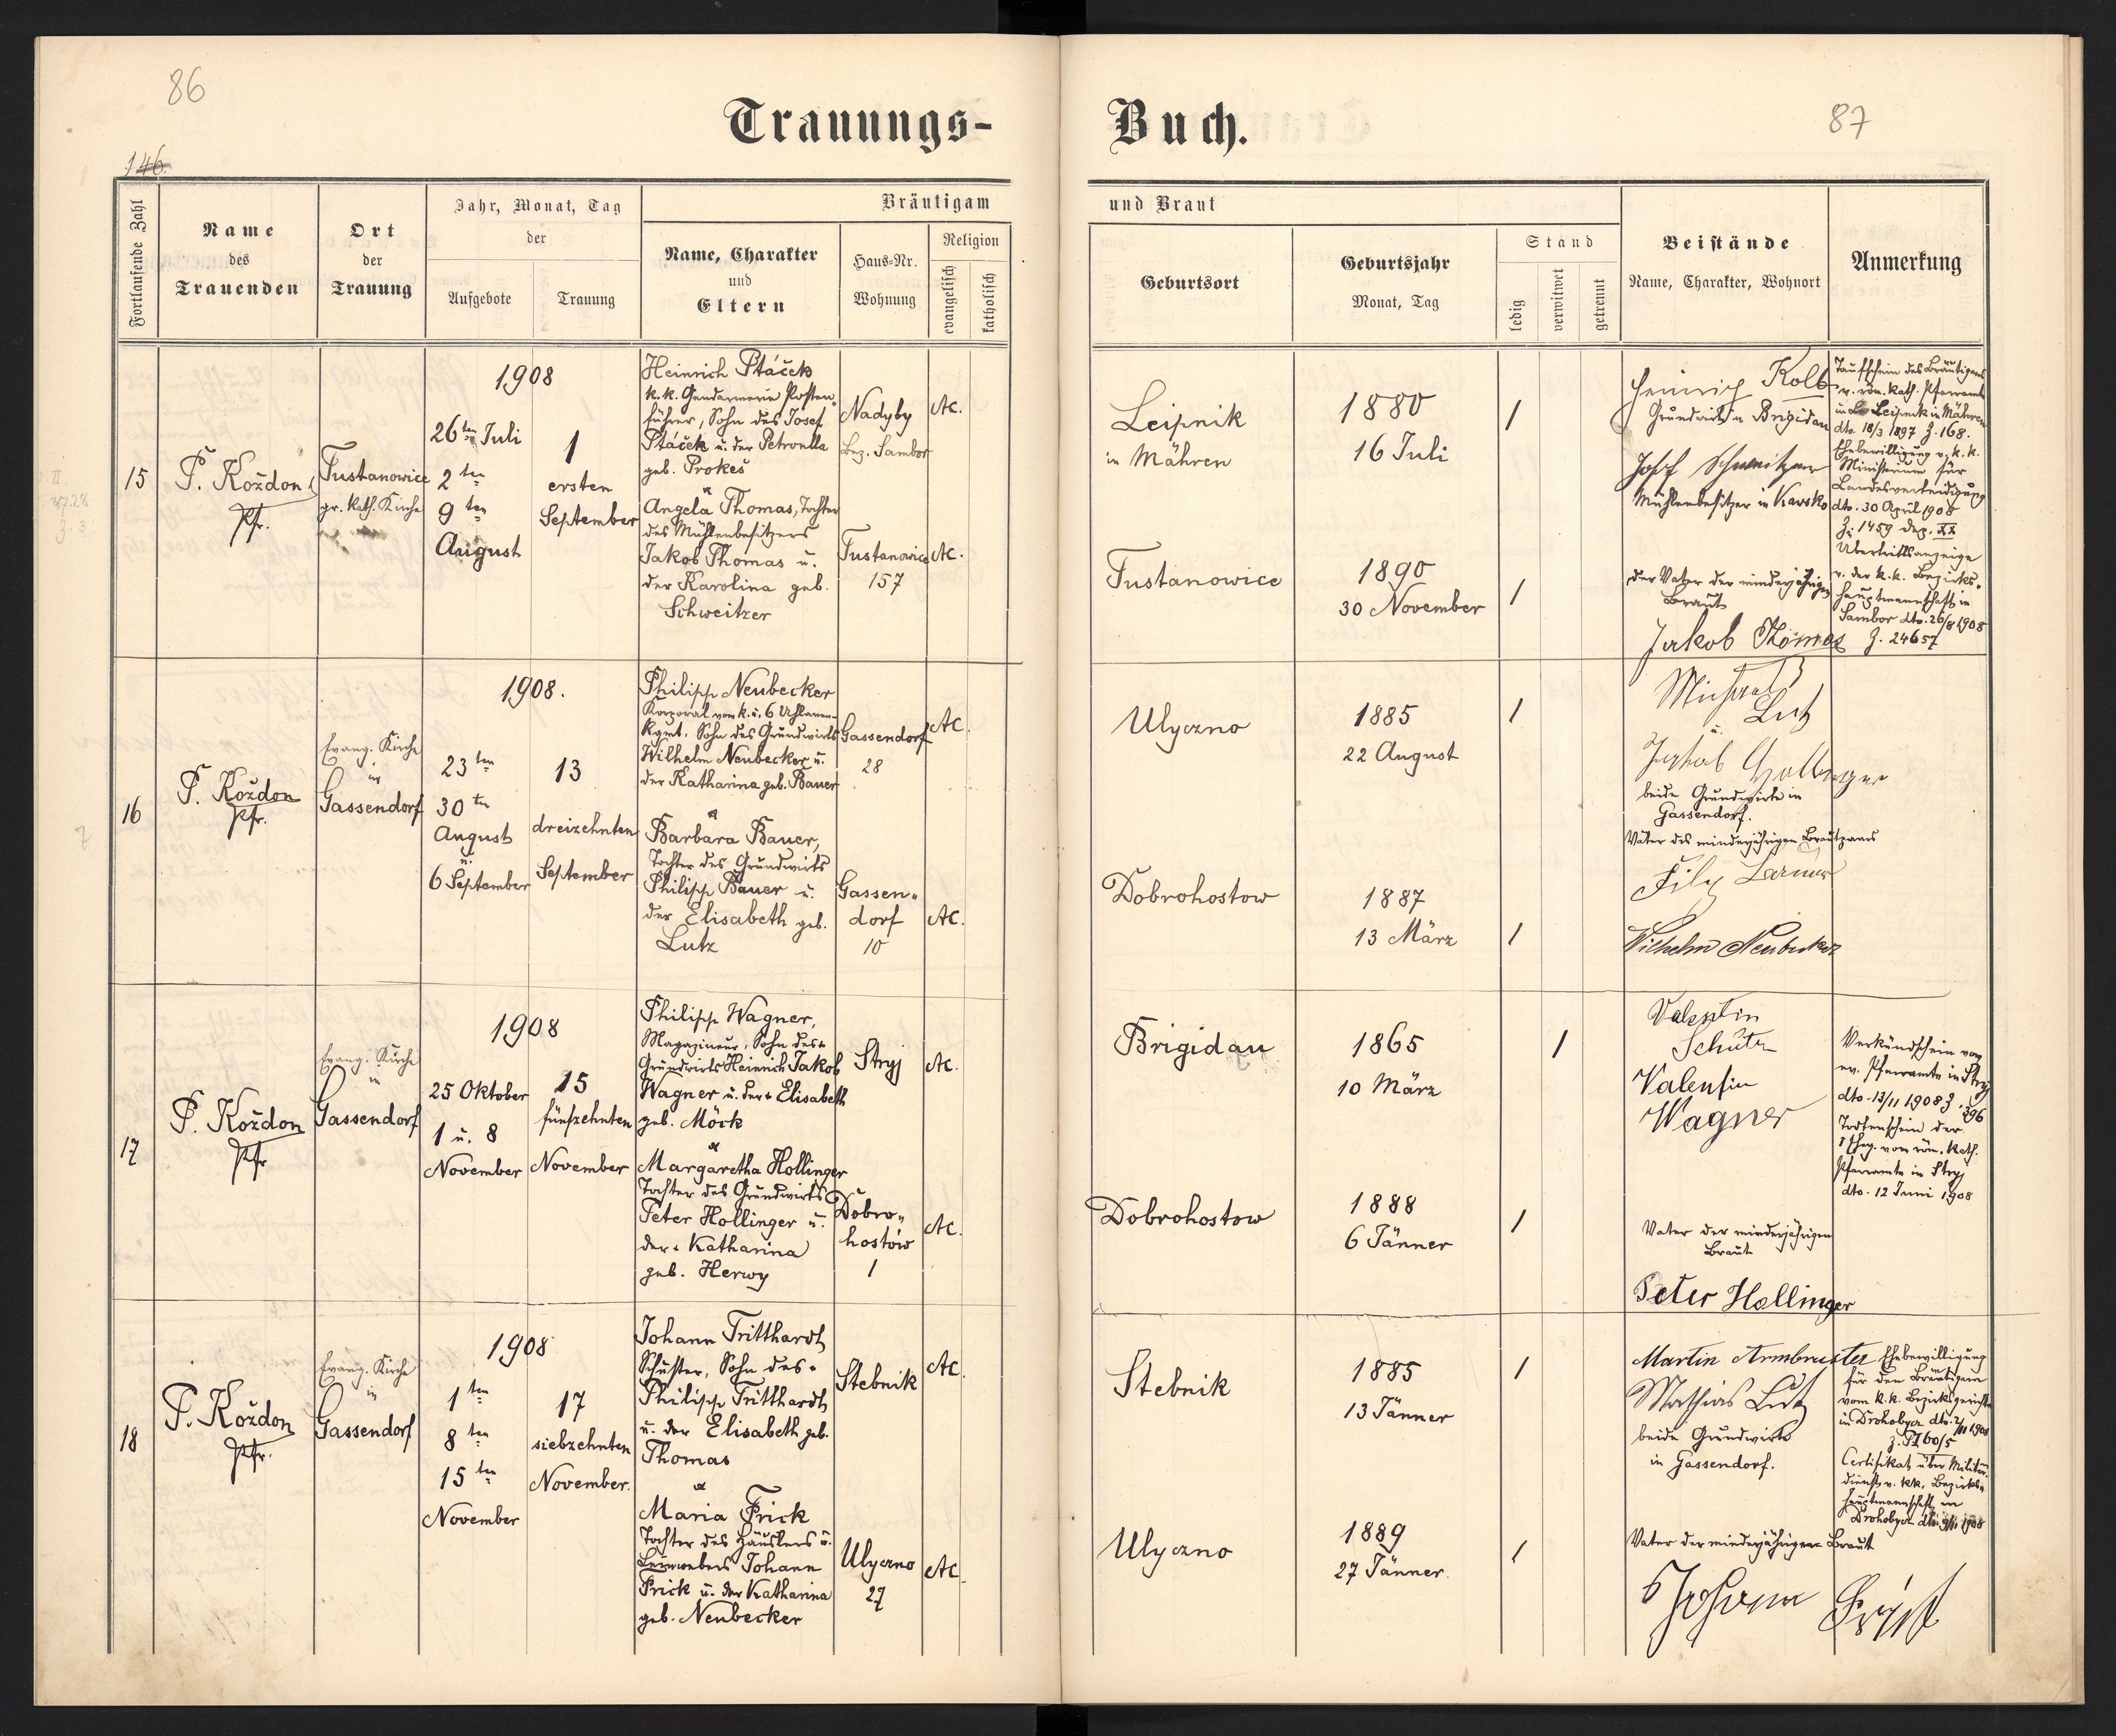 86
Trauungs-
Buch.
87
146.
Fortlaufende Zahl
Name
des
Trauenden
Ort
der
Trauung
Jahr, Monat, Tag
der
Aufgebote
Trauung
Bräutigam
Name, Charakter
und
Eltern
Haus-Nr.
Wohnung
Religion
evangelisch
katholisch
und Braut
Geburtsort
Geburtsjahr
Monat, Tag
Stand
ledig
verwitwet
getrennt
Beistände
Name, Charakter, Wohnort
Anmerkung
15
P. Koždon
Pfr.
Tustanowice
gr. kath. Kirche
1908
26ten Juli
2ten
9ten
August
1
ersten
September
Heinrich Ptáček
k.k. Gendarmerie Posten„
führer, Sohn des Josef
Ptáček u. der Petronella
geb. Prokeš
et
Angela Thomas, Tochter
des Mühlenbesitzers
Jakob Thomas u.
der Karolina geb.
Schweitzer
Nadyby
Bez. Sambor
AC.
Tustanowice
157
AC.
Leipnik
in Mähren
1880
16 Juli
1
Tustanowice
1890
30 November
1
Heinrich Kolb
Grundwirt in Brigidau
Josef Schweitzer
Mühlenbesitzer in Kawsko
der Vater der minderjährigen
Braut
Jakob Thomas
Taufschein des Bräutigams
v. röm. kath. Pfarramte
in Leipnik in Mähren
dto. 18/3 1897 Z. 168.
Ehebewilligung v. k.k.
Ministerium für
Landesverteidigung
dto. 30 April 1908
Z: 1459 dep. XX
Übertrittsanzeige
v. der k.k. Bezirks„
hauptmannschaft in
Sambor dto. 26/8 1908
Z. 24657
16
P. Koždon
Pfr.
Evang. Kirche
in
Gassendorf
1908.
23ten
30ten
August
u.
6 September
13
dreizehnten
September
Philipp Neubecker
Korporal vom k.u. 6 Uhlanen-
Rgmt. Sohn des Grundwirts
Wilhelm Neubecker u.
der Katharina geb. Bauer
et
Barbara Bauer,
Tochter des Grundwirts
Philipp Bauer u.
der Elisabeth geb.
Lutz
Gassendorf
28
AC.
Gassen„
dorf
10
AC.
Ulyczno
1885
22 August
1
Dobrohostow
1887
13 März
1
Michael
Lutz
u.
Jakob Hollinger
beide Grundwirte in
Gassendorf.
Väter des minderjährigen Brautpaars
Wilhelm Neubecker
17
P. Koždon
Pfr
Evang. Kirche
in
Gassendorf
1908
25 Oktober
1 u. 8
November
15
fünfzehnten
November
Philipp Wagner,
Magazineur, Sohn des +
Grundwirts Heinrich Jakob
Wagner u. der + Elisabeth
geb. Möck
et
Margaretha Hollinger
Tochter des Grundwirts
Peter Hollinger u.
der + Katharina
geb. Herwy
Stryj
AC.
Dobro„
hostów
1
AC.
Brigidau
1865
10 März
1
Dobrohostow
1888
6 Jänner
1
Valentin
Schütz
Valentin
Wagner
Vater der minderjährigen
Braut
Peter Hollinger
Verkündschein vom
ev. Pfarramte in Stryj
dto. 13/11 1908 Z. 396
Todtenschein der
I Eheg. vom röm. kath.
Pfarramte in Stryj
dto. 12 Juni 1908
18
P. Koždon
Pfr.
Evang. Kirche
in
Gassendorf
1908
1ten
8ten
15ten
November
17
siebzehnten
November.
Johann Tritthardt
Schuster, Sohn des +
Philipp Tritthardt
u. der Elisabeth geb.
Thomas
et
Maria Frick
Tochter des Häuslers u.
Leinwebers Johann
Frick u. der Katharina
geb. Neubecker
Stebnik
AC.
Ulyczno
27
AC.
Stebnik
1885
13 Jänner
1
Ulyczno
1889
27 Jänner.
1
Martin Armbruster
Mathias Lutz
beide Grundwirte
in Gassendorf.
Vater der minderjährigen Braut
Johann
Ehebewilligung
für den Bräutigam
vom k.k. Bezirksgerichte
in Drohobycz dto. 2/11 1908
Certifikat über Militär„
dienst v. kk. Bezirks„
hauptmannschaft in
Drohobycz dto. 9/11 1908